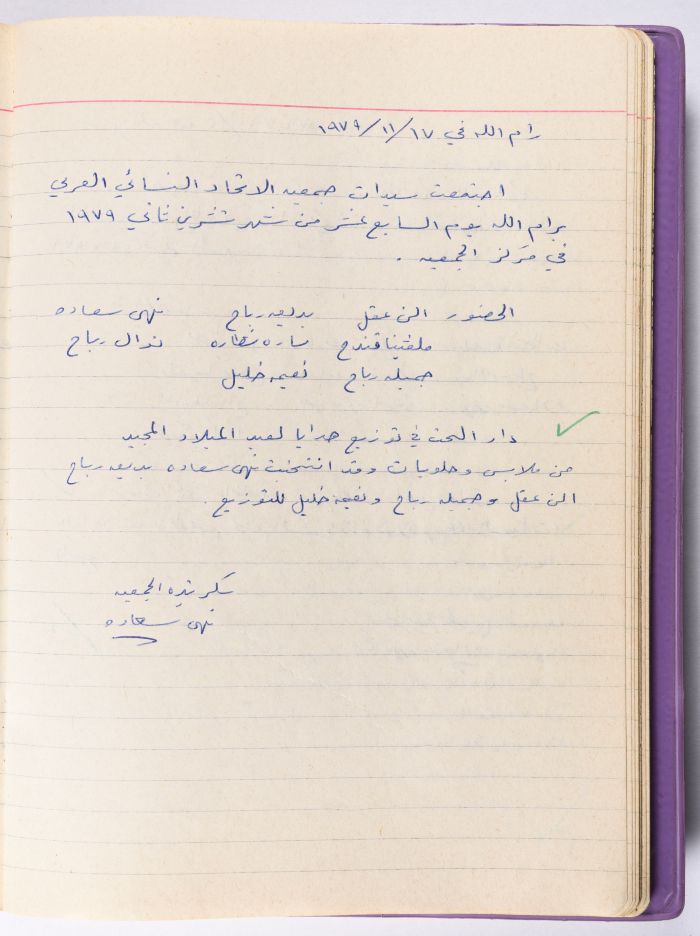 رام الله في ١٩٧٩/١١/١٧
اجتمعت سيدات جمعيه الاتحاد النسائي العربي
برام الله يوم السابع عشر من شهر تشرين ثاني ١٩٧٩
في مركز الجمعيه .
الحضور الن عقل بديعه رباح نهى سعاده
ملفينا قندح ساره نصاره نوال رباح
جميله رباح نعيمه خليل
دار البحث في توزيع هدايا لعيد الميلاد المجيد
من ملابس وحلويات وقد انتخبت نهى سعاده بديعه رباح
الن عقل وجميله رباح ونعيمه خليل للتوزيع .
سكرتيره الجمعيه
نهى سعاده